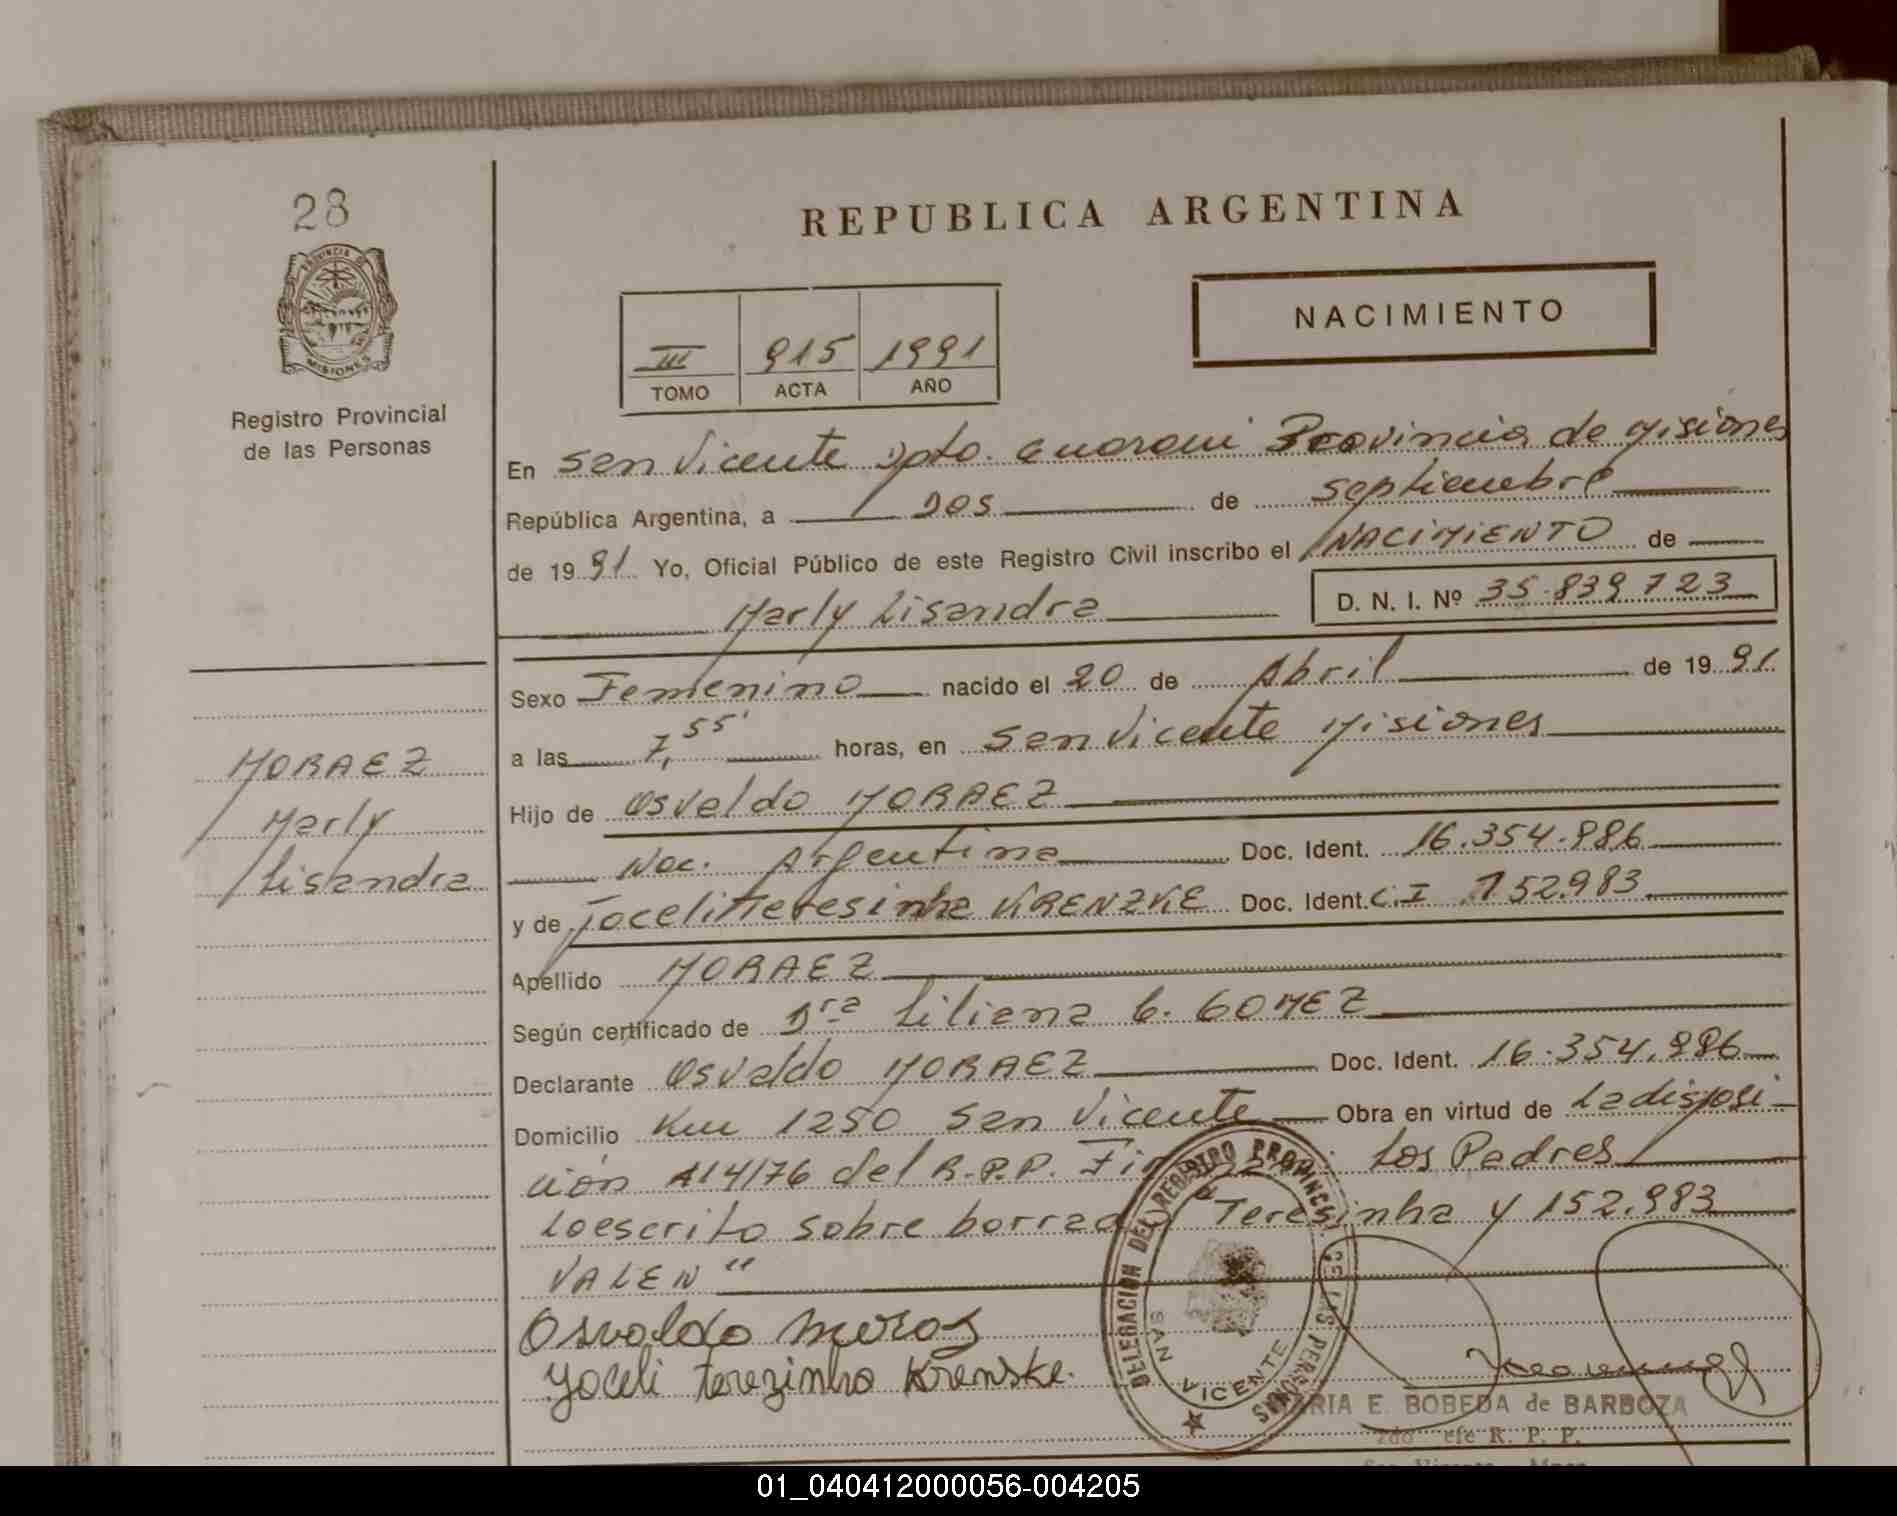 28
PROVINCIA DE
MISIONES
Registro Provincial
de las Personas
MORAEZ
Marly
Lisandra
REPUBLICA ARGENTINA
NACIMIENTO
III 915 1991
TOMO ACTA AÑO
En San Vicente Dpto. Guarani Provincia de Misiones
República Argentina, a DOS de septiembre
de 1991 Yo, Oficial Público de este Registro Civil inscribo el NACIMIENTO de
Marly Lisandra D. N. I. Nº 35.839.723
Sexo Femenino nacido el 20 de Abril de 1991
a las 7,55' horas, en San Vicente Misiones
Hijo de Osvaldo MORAEZ
Nac. Argentina Doc. Ident. 16.354.986
y de Joceli Teresinha KRENZKE Doc. Ident. C.I 152.983
Apellido MORAEZ
Según certificado de Dra Liliana G. GOMEZ
Declarante Osvaldo MORAEZ Doc. Ident. 16.354.986
Domicilio Km 1250 San Vicente Obra en virtud de La disposi-
ción 414/76 del R.P.P. Los Padres
Lo escrito sobre borrado " Teresinha y 152.983
VALEN "
Osvaldo Moraz
Yoceli Terezinha Krenske.
DELEGACION DEL REGISTRO PROVINCIAL DE LAS PERSONAS
SAN VICENTE
MARIA E. BOBEDA de BARBOZA
R. P. P.
01_040412000056-004205